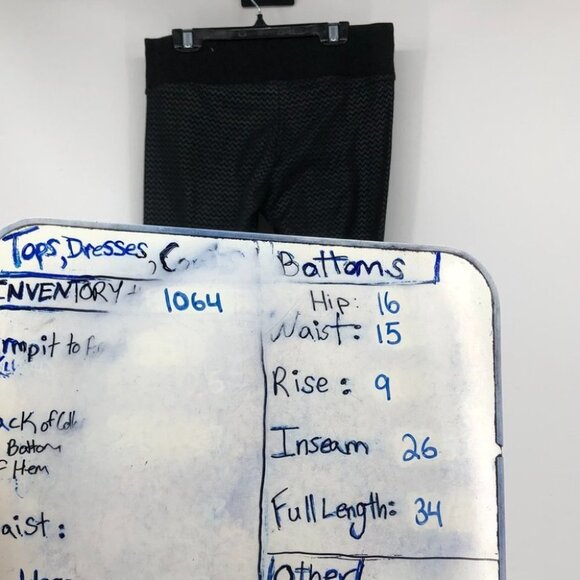 Tops, Dresses,
INVENTORY 1064
mpit to
ack of Coll
Bottom
F Hem
aist:
Bottoms
Hip: 16
Waist: 15
Rise: 9
Inseam 26
Full Length: 34
Other